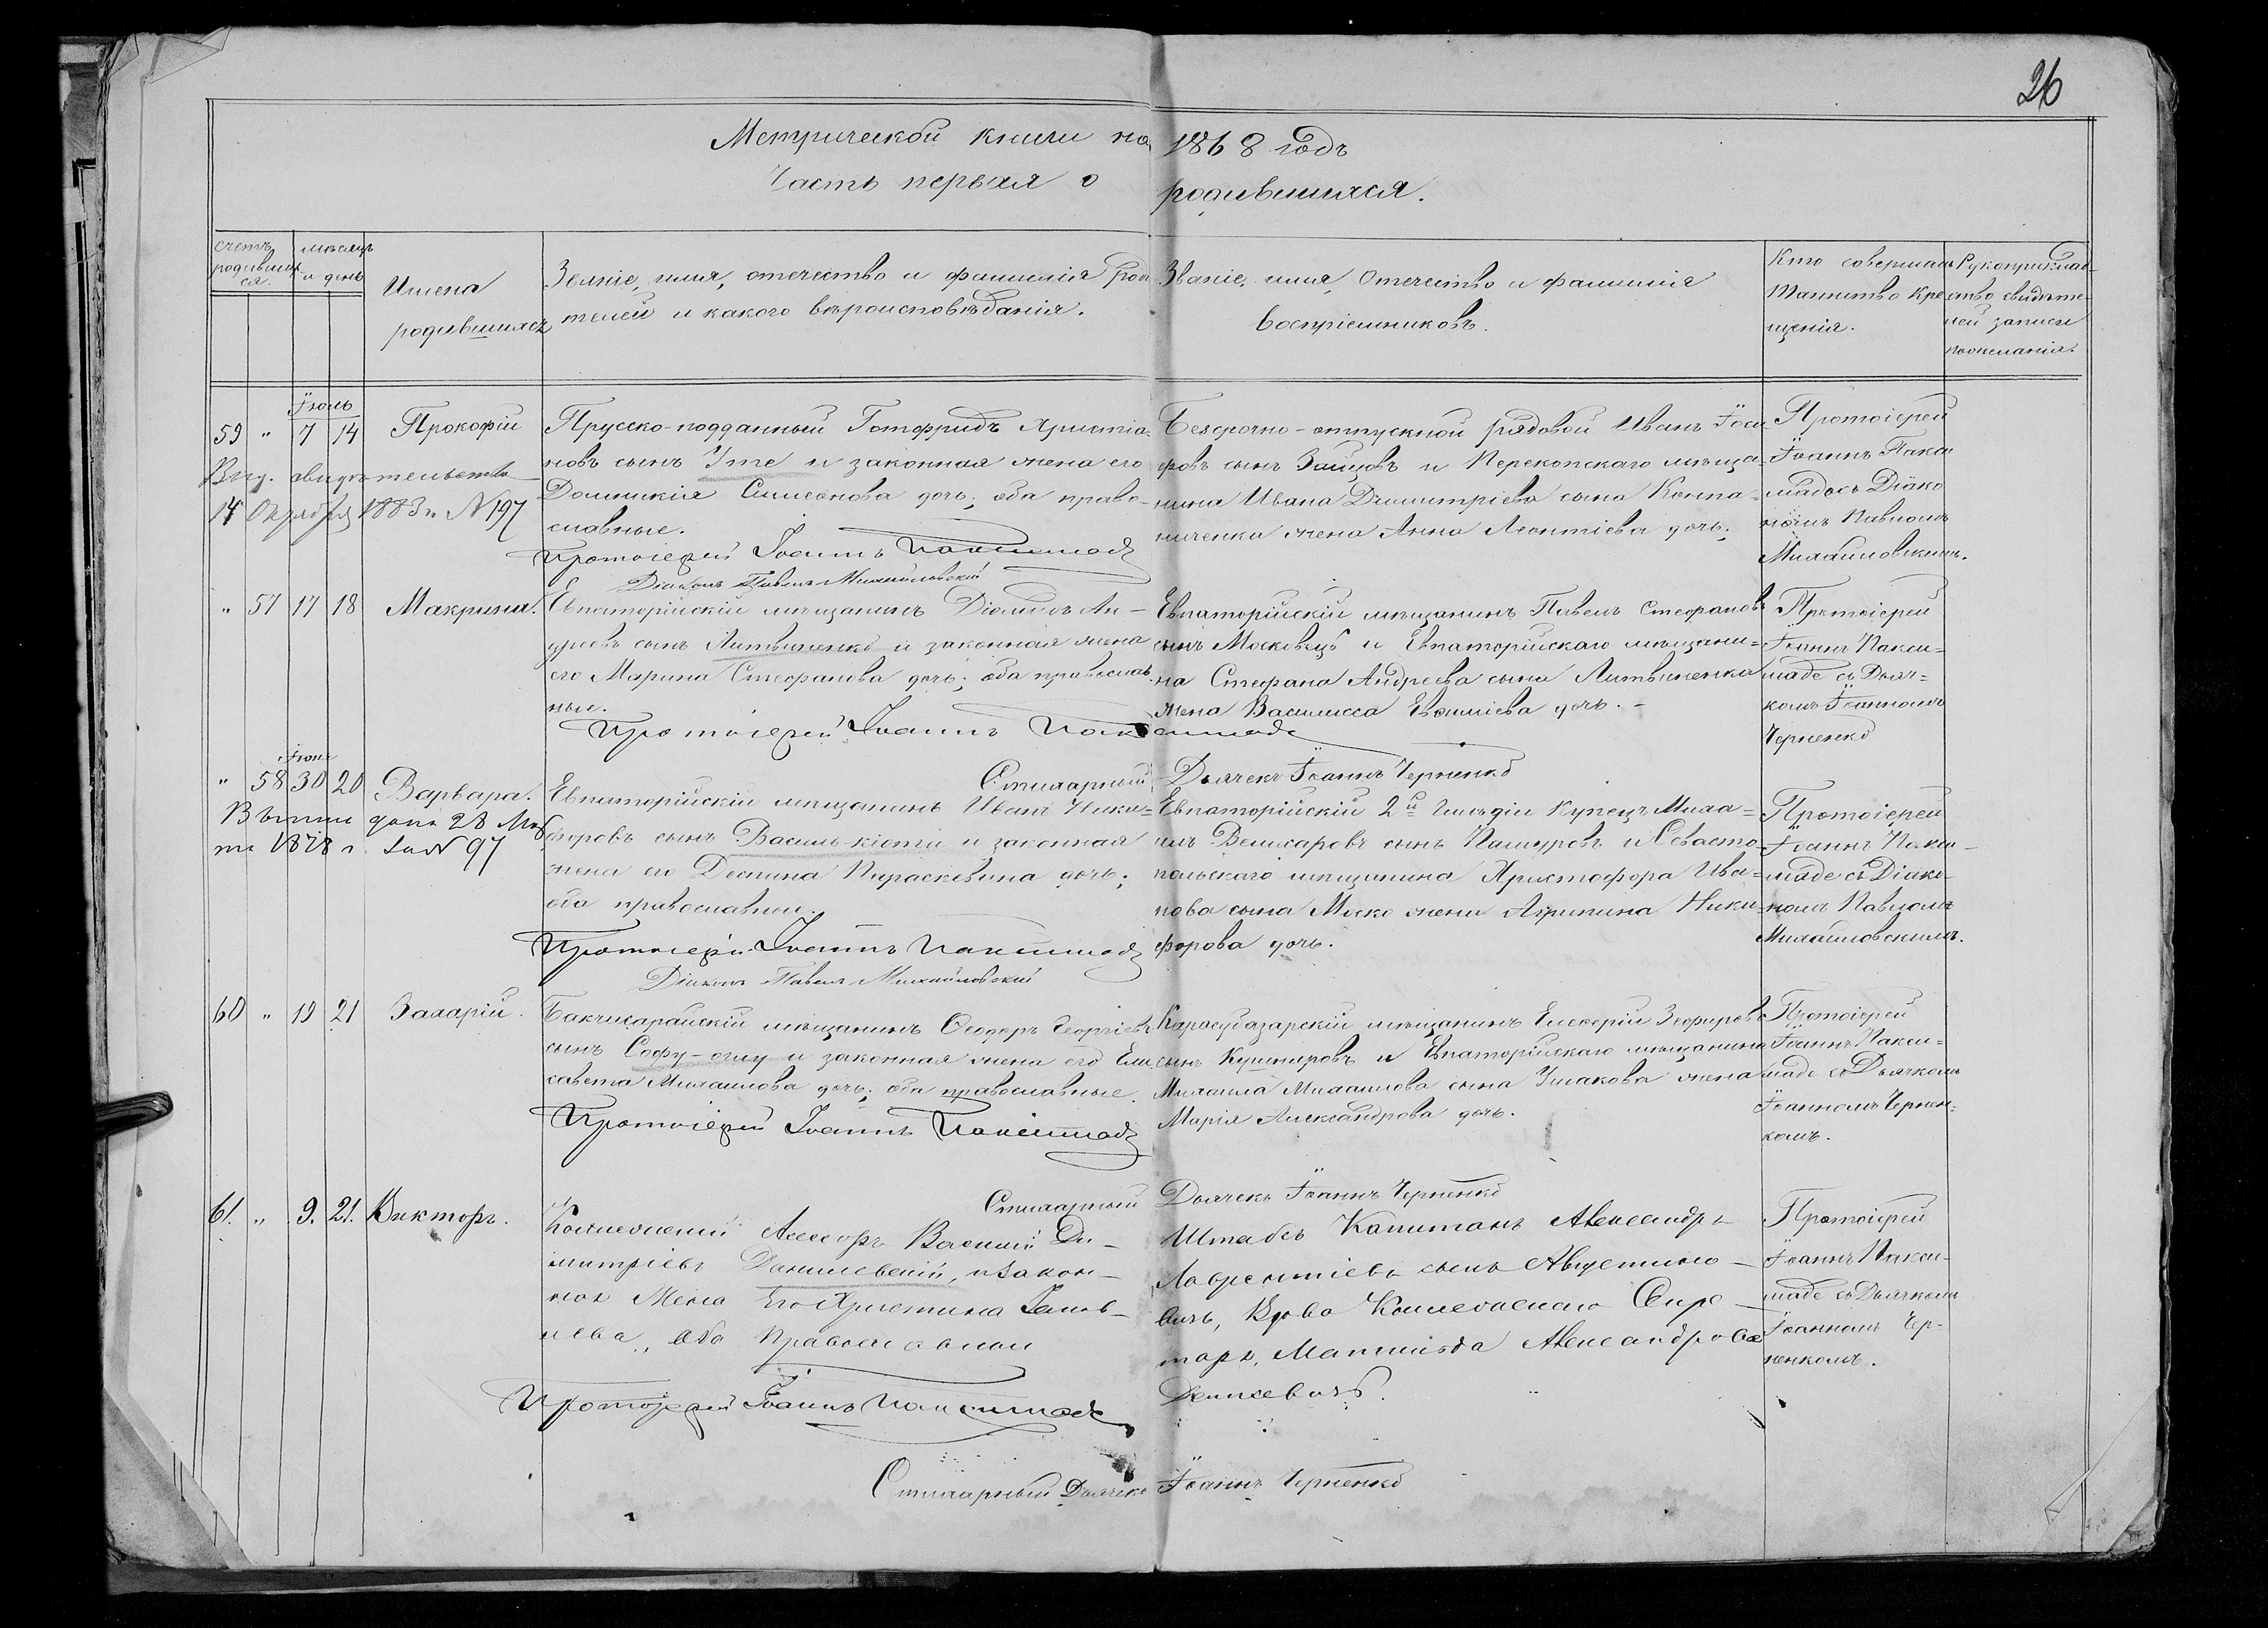 26
Метрической книги на 1868 годъ
Часть первая о родившихся.
счетъ родившихся.
мѣсяцъ и день
Имена
родившихся
Званіе, имя, отечество и фамилія роди
телей и какого вѣроисповѣданія.
Званіе, имя, отечество и фамилія
воспріемниковъ.
Кто совершалъ
таинство кре
щенія.
Рукоприклад-
ство свидѣте-
лей записи
по желанію.
Іюль
59 " 7 14 Прокофій
Выд. свидѣтельство
14 Октября 1883 г. N 197
Прусско-подданный Готфридъ Христіа-
новъ сынъ Уте и законная жена его
Домникія Симеонова дочь; оба право-
славные.
Протоіерей Іоаннъ Паксимадъ
Діаконъ Павелъ Михайловскій
Безсрочно-отпускной рядовой Иванъ Іоси
фовъ сынъ Зайцовъ и Перекопскаго мѣща-
нина Ивана Димитріева сына Компа-
ниченка жена Анна Леонтіева дочь;
Протоіерей
Іоаннъ Пакси
мадъ съ Діако
номъ Павломъ
Михайловскимъ.
" 57 17 18 Макрина.
Евпаторійскій мѣщанинъ Діомидъ Ан-
дреевъ сынъ Литвиненко и законная жена
его Марина Стефанова дочь; оба православ
ные.
Протоіерей Іоаннъ Паксимадъ
Стихарный Дьячекъ Іоаннъ Черненко
Евпаторійскій мѣщанинъ Павелъ Стефановъ
сынъ Московецъ и Евпаторійскаго мѣщани=
на Стефана Андреева сына Литвиненка
жена Василисса Евфиміева дочь. -
Протоіерей
Іоаннъ Пакси=
маде съ Дьяч=
комъ Іоанномъ
Черненко
Іюнь
" 58 30 20 Варвара.
28
1878 г. за N 97
Евпаторійскій мѣщанинъ Иванъ Ники=
форовъ сынъ Василь-кіоти и законная
жена его Деспина Параскевина дочь;
оба православные.
Протоіерей Іоаннъ Паксимадъ
Діаконъ Павелъ Михайловскій
Евпаторійскій 2й гильдіи купецъ Миха=
илъ Велисаровъ сынъ Пашуровъ и Севасто-
польскаго мѣщанина Христофора Ива=
нова сына Моско жена Агрипина Ники-
форова дочь.
Протоіерей
Іоаннъ Пакси-
маде съ Діако-
номъ Павломъ
Михайловскимъ.
60 " 19 21 Захарій.
Бахчисарайскій мѣщанинъ Ѳеодоръ Георгіевъ
сынъ Софу-оглу и законная жена его Ели
савета Михаилова дочь; оба православные.
Протоіерей Іоаннъ Паксимадъ
Стихарный Дьячекъ Іоаннъ Черненко
Карасубазарскій мѣщанинъ Елевферій Зефировъ
сынъ Кушнировъ и Евпаторійскаго мѣщанина
Михаила Михаилова сына Ушакова жена
Марія Александрова дочь.
Протоіерей
Іоаннъ Пакси=
маде съ Дьячкомъ
Іоанномъ Чернен=
комъ.
61. " 9. 21. Викторъ.
Коллежскій Асессоръ Василій Ди-
митріевъ Данилевскій, и закон-
ная Жена Его Христина
оба Православные
Протоіерей Іоаннъ Паксимадъ
Стихарный Дьячекъ Іоаннъ Черненко
Штабсъ Капитанъ Александръ
Лаврентіевъ сынъ Августино-
вичъ, Вдова Коллежскаго Секре-
таря, Матильда Александрова
Протоіерей
Іоаннъ Пакси-
маде съ Дьячкомъ
Іоанномъ Чер-
ненкомъ.